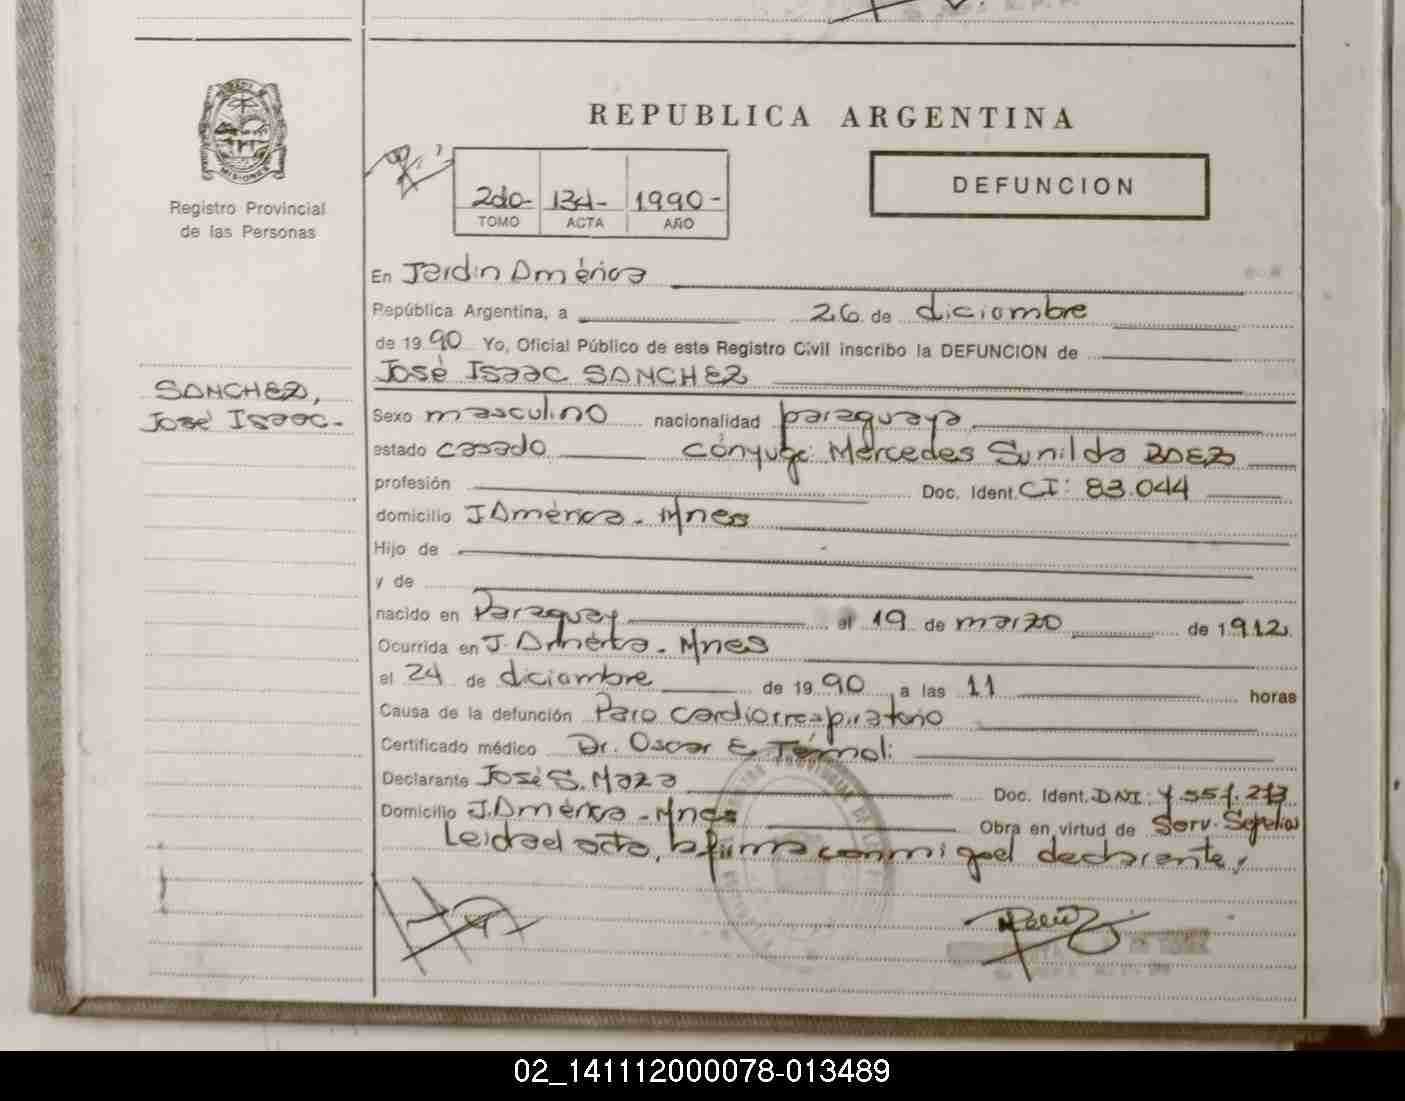 REPUBLICA ARGENTINA
MISIONES
Registro Provincial
de las Personas
2do- 134- 1990-
TOMO ACTA AÑO
DEFUNCION
En Jardin América
República Argentina, a 26 de diciembre
de 1990 Yo, Oficial Público de este Registro Civil inscribo la DEFUNCION de
José Isaac SANCHEZ
SANCHEZ,
José Isaac.-
Sexo masculino nacionalidad paraguaya
estado casado Cónyuge: Mercedes Sunilda BAEZ
profesión Doc. Ident. CI: 83.044
domicilio J. América. Mnes
Hijo de
y de
nacido en Paraguay el 19 de marzo de 1912.
Ocurrida en J. América. Mnes
el 24 de diciembre de 1990 a las 11 horas
Causa de la defunción Paro cardiorrespiratorio
Certificado médico Dr. Oscar E.
Declarante José S. Maza Doc. Ident. DNI.
Domicilio J. América. Mnes Obra en virtud de Serv. Sepelios
Leida el acta, la firma conmigo el declarante,
02_141112000078-013489